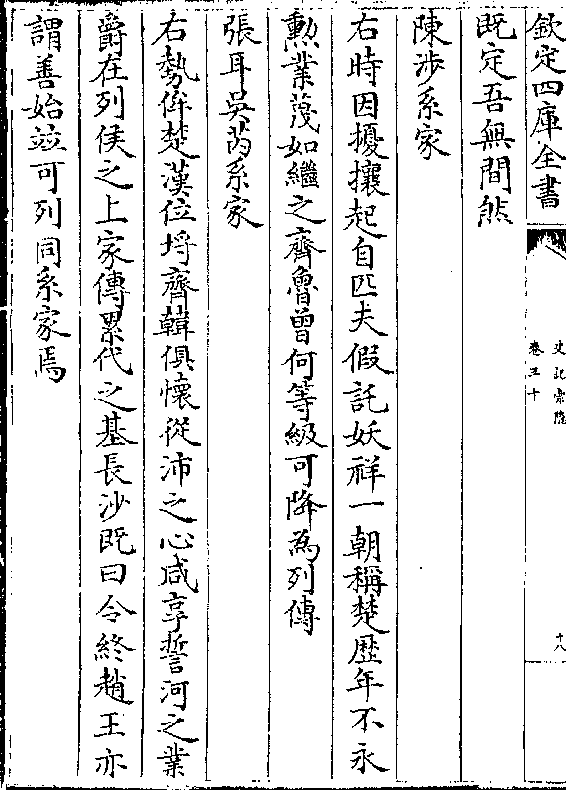 欽定四庫全書
史記索隱
卷三十
十八
既定吾無間然
陳涉系家
右時因擾攘起自匹夫假託妖祥一朝稱楚歴年不永
勲業蔑如繼之齊魯曾何等級可降為列傳
張耳吳芮系家
右勢侔楚漢位埒齊韓俱懐從沛之心咸享誓河之業
爵在列侯之上家傳累代之基長沙既曰令終趙王亦
謂善始竝可列同系家焉